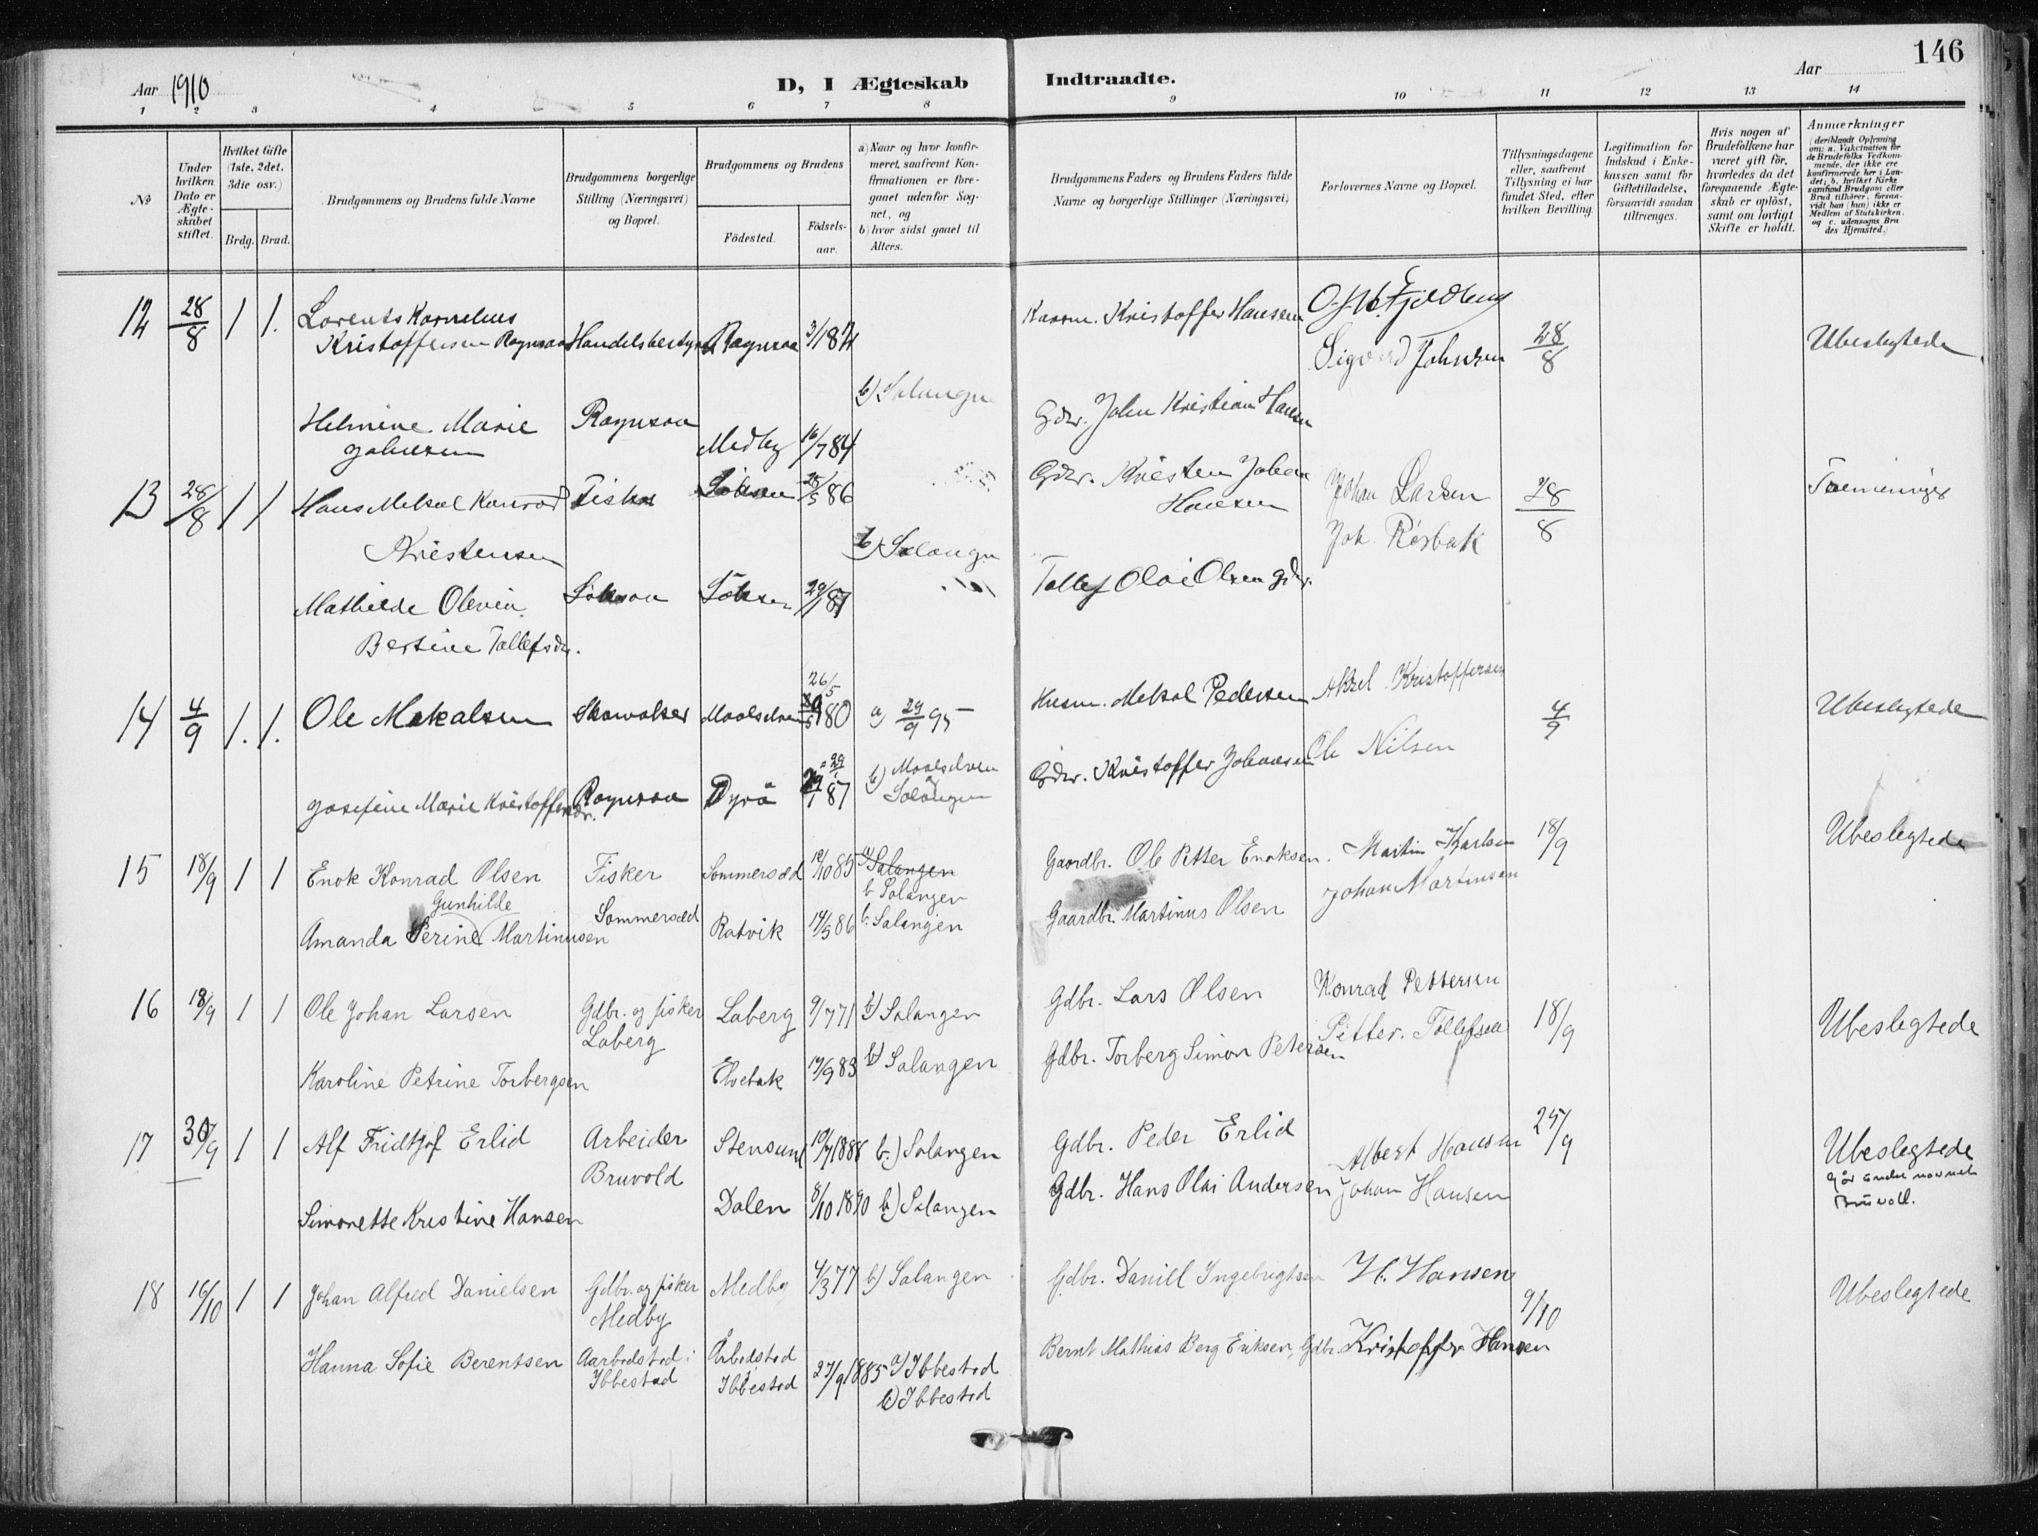 146
Aar 1910
D, I Ægteskab Indtraadte.
Aar
1 2 3 4 5 6 7 8 9 10 11 12 13 14
No
Under hvilken Dato er Ægteskabet stiftet.
Hvilket Gifte (1ste, 2det, 3die osv.)
Brdg. Brud.
Brudgommens og Brudens fulde Navne
Brudgommens borgerlige Stilling (Næringsvei) og Bopæl.
Brudgommens og Brudens
Födested.
Födselsaar.
a) Naar og hvor konfirmeret, saafremt Konfirmationen er foregaaet udenfor Sognet, og
b) hvor sidst gaaet til Alters.
Brudgommens Faders og Brudens Faders fulde Navne og borgerlige Stillinger (Næringsvei)
Forlovernes Navne og Bopæl.
Tillysningsdagene eller, saafremt Tillysning ei har fundet Sted, efter hvilken Bevilling.
Legitimation for Indskud i Enkekassen samt for Giftetilladelse, forsaavidt saadan tiltrænges.
Hvis nogen af Brudefolkene har været gift för, hvorledes da det foregaaende Ægteskab er oplöst, samt om lovligt Skifte er holdt.
Anmærkninger
(deriblandt Oplysning om: a. Vakcination for de Brudefolks Vedkommende, der ikke ere konfirmerede her i Landet; b. hvilket Kirkesamfund Brudgom eller Brud tilhörer, forsaavidt han (hun) ikke er Medlem af Statskirken. og c. udensogns Brudes Hjemsted.)
12 28/8 1 1. Lorents Kornelius
Kristoffersen Røgnsaa Handelsbestyr Røgnsaa 3/1 84
Kaarm. Kristoffer Hansen
Sigvard Johnsen 28/8 Ubeslegtede
b) Salangen
Helmine Marie
Johnsen Røgnsaa Medby 16/7 84
Gdbr. John Kristian Hansen
13 28/8 1 1 Hans Meksal Konrad Fisker 86
Kristensen
Gdbr. Kristen Johan
Hansen
Johan Larsen 28/8
Joh. Rørbak
b) Salangen
Mathilde Olevin
Bertine Tollefsdr. 29/1 87
Tollef Olai Olsen gdbr.
14 4/9 1. 1. Ole Mekalsen Skomaker Maalselven 26/5 80 a) 29/9 95
Husm. Meksal Pedersen Aksel Kristoffersen 4/9 Ubeslegtede
Josefine Marie Kristoffersdr. Røgnsaa Dyrö 29/1 87 b) Maalselven
og Salangen
Gdbr. Kristoffer Johansen Ole Nilsen
15 18/9 1 1 Enok Konrad Olsen Fisker Sommersæd 12/10 85 a) Salangen
b. Salangen
Gaardbr. Ole Petter Enoksen. Martin Karlsen 18/9 Ubeslegtede
Gunhilde
Amanda Perine Martinusen Sommersæd Rotvik 14/5 86 b. Salangen
Gaardbr. Martinus Olsen Johan Martinsen
16 18/9 1 1 Ole Johan Larsen Gdbr. og fisker
Laberg Laberg 9/7 71 b) Salangen
Gdbr. Lars Olsen Konrad Pettersen 18/9 Ubeslegtede
Karoline Petrine Torbergsen Elvebak 17/9 83 b) Salangen
Gdbr. Torberg Simon Petersen Petter. Tollefsen
17 30/9 1 1 Alf Fridtjof Erlid Arbeider
Bruvold Stensund 10/7 1888 b.) Salangen
Gdbr. Peder Erlid Albert Hansen 25/9 Ubeslegtede
Går under navnet
Bruvoll.
Simonette Kristine Hansen Dalen 8/10 1890 b) Salangen
Gdbr. Hans Olai Andersen Johan Hansen
18 16/10 1 1 Johan Alfred Danielsen Gdbr. og fisker
Medby Medby 4/3 77 b) Salangen
Gdbr. Daniel Ingebrigtsen H. Hansen 9/10 Ubeslegtede
Hanna Sofie Berentsen Aarbodstad i
Ibbestad Årbodstad
Ibbestad 27/9 1885 a) Ibbestad
b) Ibbestad
Bernt Mathias Berg Eriksen, Gdbr. Kristoffer Hansen